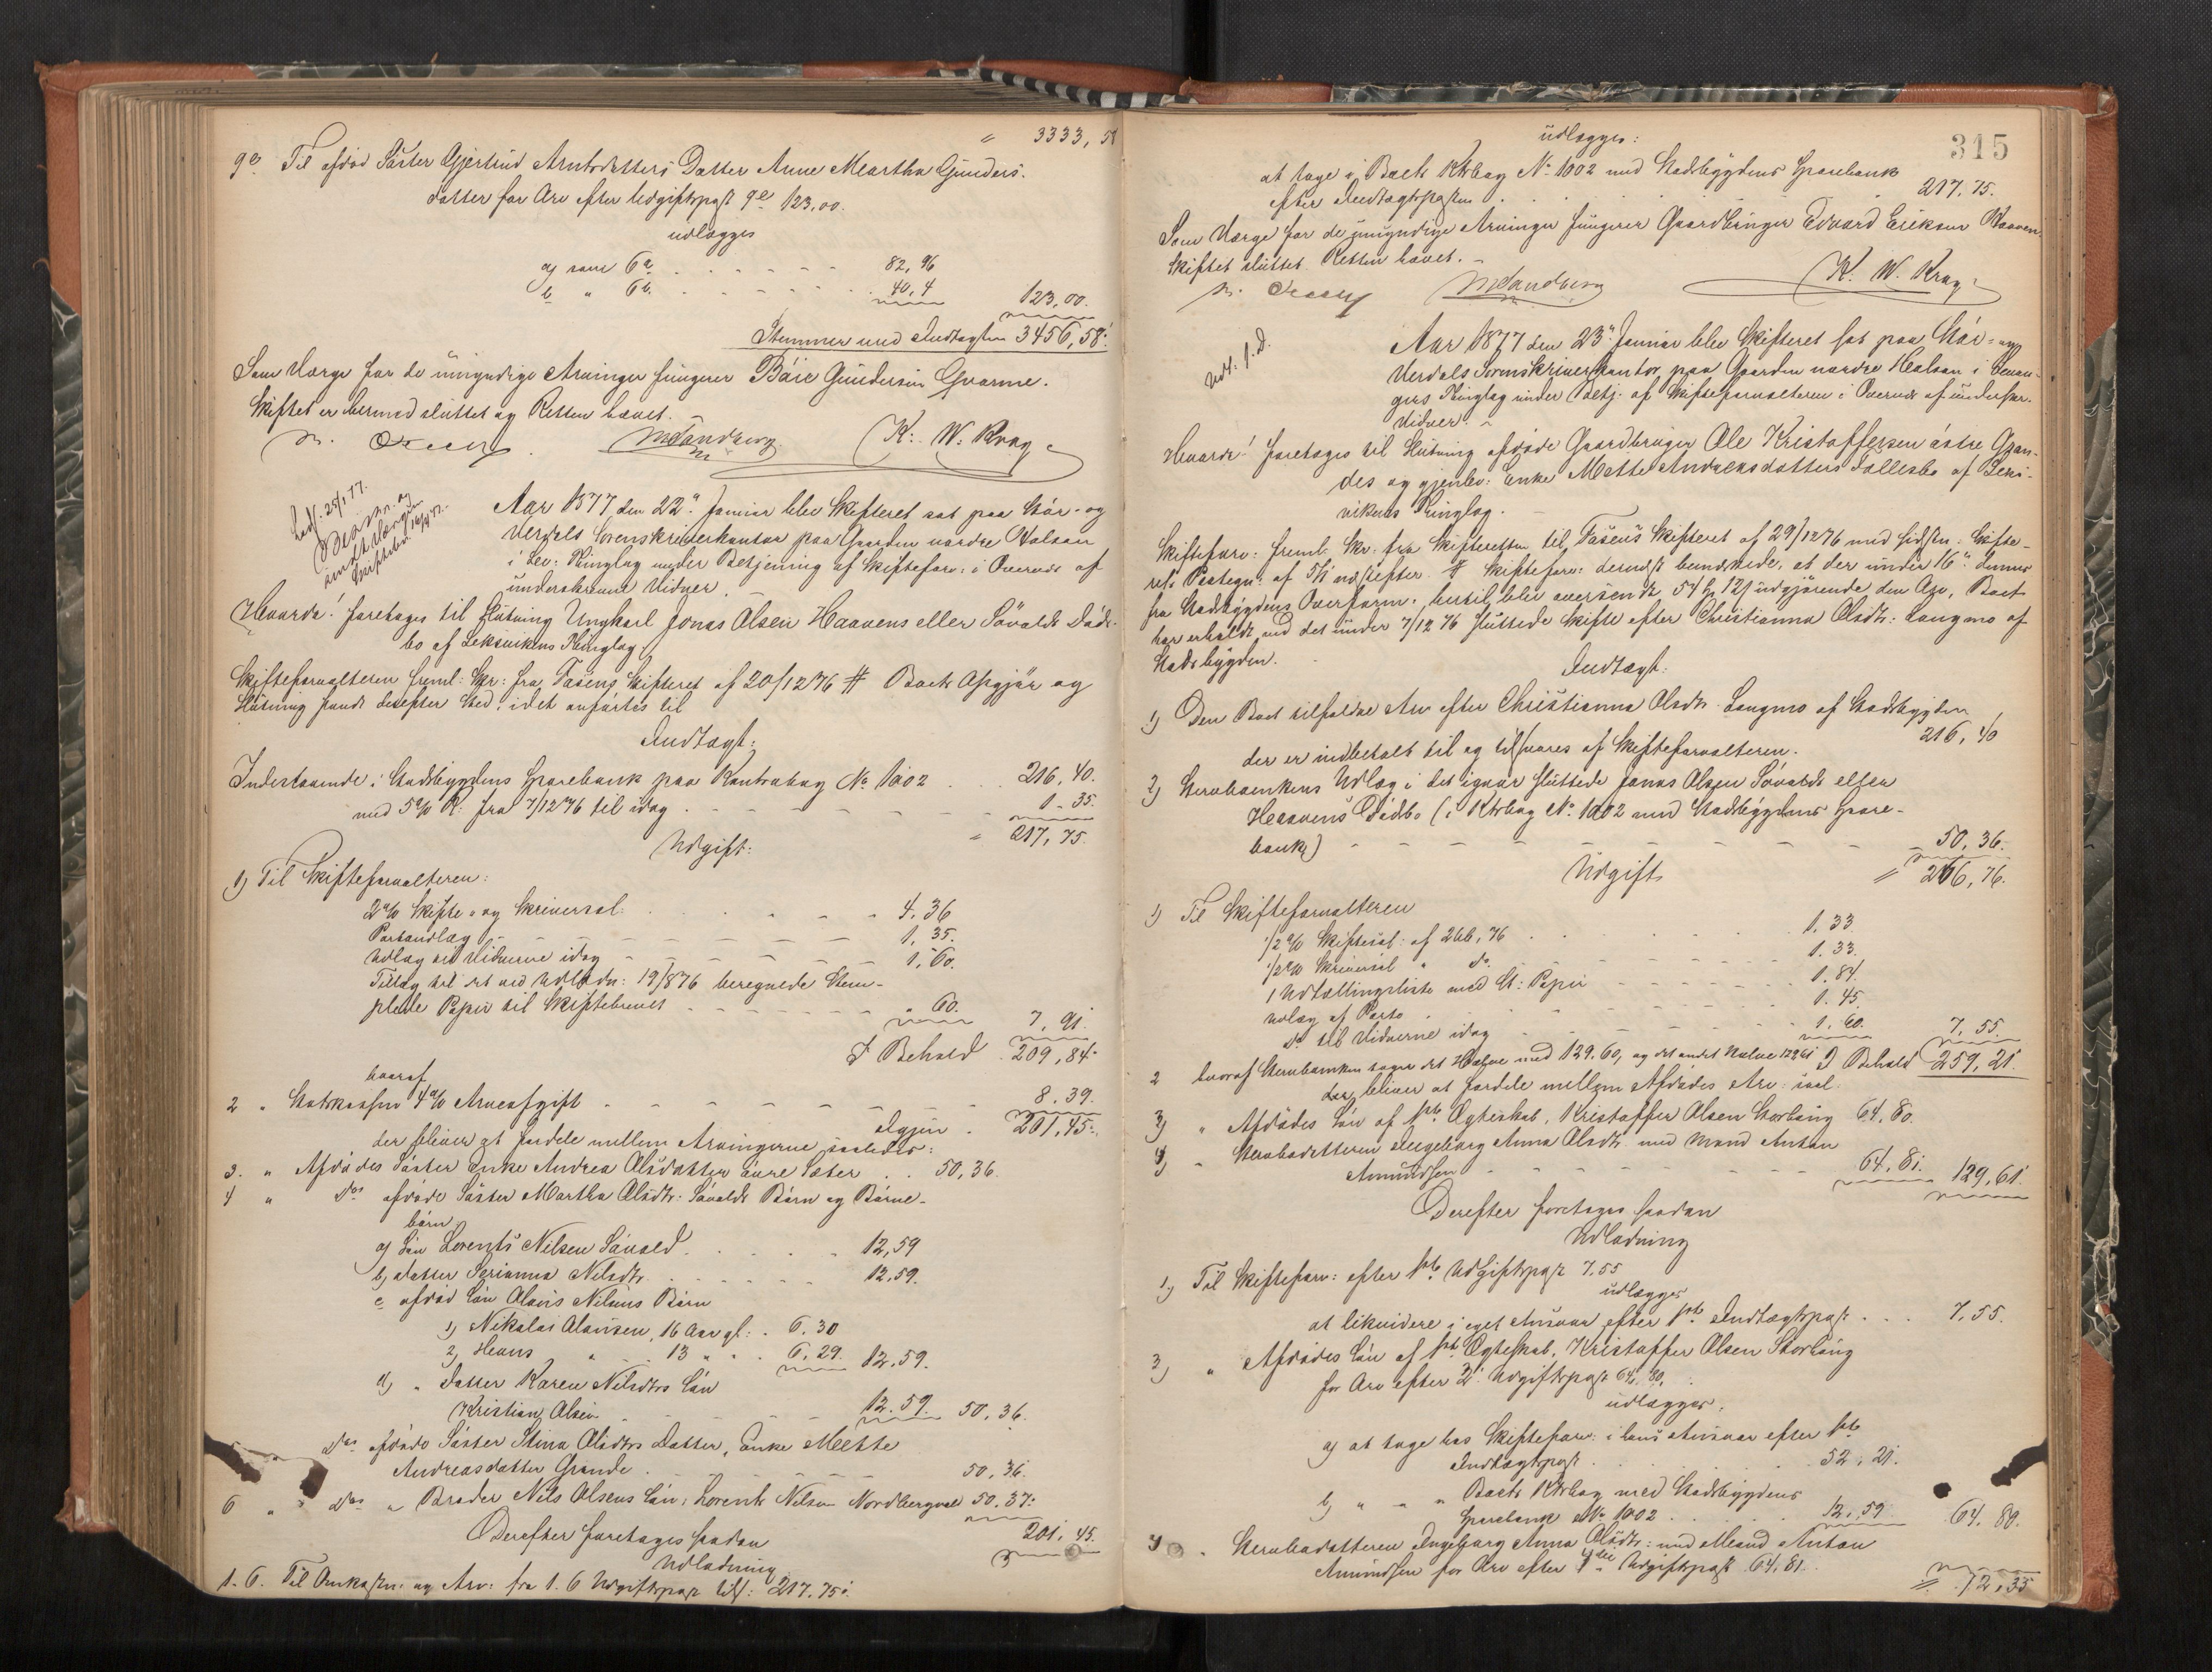 = 3333, 58
9e. Til afdød Søster Gjertrud Arntsdatters Datter Anne Martha Gunders-
datter for Arv efter Udgiftspost 9e 123,00.
udlægges
a) som 6a 82, 96
b " 6b. 40, 4
123,00.
Stemmer med Indtægten 3456,58.
Som Værge for de umyndige Arvinger fungerer Baie Gundersen Qvarme.
Skiftet er hermed sluttet og Retten hævet.
MSandberg K. W. Krag
Aar 1877 den 22de Januar blev Skifteret sat paa Stør- og
Verdals Sorenskriverkontor paa Gaarden nordre Halsan
i Lev: Thinglag under Betjening af Skifteforv: i Overvær af
underskrevne Vidner.
Hvorda! foretages til Slutning Ungkarl Jonas Olsen Haavens eller Søvalds Døds-
bo af Leksvikens Thinglag
Skifteforvalteren freml: Skr: fra Fosens Skifteret af 20/12 76 # Boets Opgjør og
Slutning fandt derefter Sted, idet anførtes til
Indtægt:
Indestaaende i Stadsbygdens Sparebank paa Kontrabog No 1002 216, 40.
med 5% R. fra 7/12 76 til idag 1 - 35.
= 217, 75.
Udgift:
1) Til Skifteforvalteren:
2% Skifte- og Skriversal: 4, 36
Portoudlæg 1, 35.
Udlæg til Vidnerne idag 1, 60.
Tillæg til det ved Udlodn: 19/8 76 beregnede Stem-
plede Papir til Skiftebrevet " 60.
7, 91.
I Behold 209, 84.
hvoraf
2 " Statskassen 4% Arveafgift 8. 39.
Igjen 201, 45.
der bliver at fordele mellem Arvingerne saaledes:
3. " Afdødes Søster Enke Andrea Olsdatter øvre Sæter 50, 36.
4 " Ds afdøde Søster Martha Olsdtr: Søvalds Børn og Børne-
børn
a) Søn Lorents Nilsen Søvald 12, 59
b, Datter Serianna Nilsdtr 12, 59.
c afdød Søn Olavis Nilsens Børn
1) Nikolai Olavisen, 16 Aar gl: 6. 30
2) Hans " 13 " 6, 29. 12, 59.
d) " Datter Karen Nilsdtrs Søn
Kristian Olsen 12. 59. 50, 36.
Ds afdøde Søster Stina Olsdtrs Datter, Enke Mette
Andreasdatter Grande 50, 36.
6 " Ds " Broder Nils Olsens Søn: Lorents Nilsen Nordbergvald 50, 37.
201, 45.
Derefter foretages saadan
Udlodning
1. 6. Til Omkostn: og Arv: fra 1. 6 Udgiftspost tils: 217. 75.
315
udlægges:
at tage i Boets Ktrbog No 1002 med Stadsbygdens Sparebank
efter Indtægtsposten 217. 75.
Som Værge for de umyndige Arvinger fungerer Gaardbruger Edvard Eriksen Haaven.
Skiftet sluttet. Retten hævet.
MSandberg K. W. Krag
Udf. s. d.
Aar 1877 den 23de Januar blev Skifteret sat paa Stør- og
Verdals Sorenskriverkontor paa Gaarden nordre Halsan i Levan-
gers Thinglag under Betj: af Skifteforvalteren i Overvær af underskr.
Vidner.
Hvorda! foretages til Slutning afdøde Gaardbruger Ole Kristoffersen østre Gran-
des og gjenlev: Enke Mette Andreasdatters Fællesbo af Leks-
vikens Thinglag.
Skifteforv: freml. Skr. fra Skifteretten til Fosens Skifteret af 29/12 76 med sidstn: Skifte-
rets Paategn: af 5/1 næstefter # Skifteforv: dernæst bemærkede, at der under 16de dennes
fra Stadsbygdens Overform: hertil blev oversendt 54 Sp 12 s udgjørende den Arv, Boet
har erholdt ved det under 7/12 76 sluttede Skifte efter Christianna Olsdtr: Langmo af
Stadsbygden.
Indtægt:
1) Den Boet tilfaldne Arv efter Christianna Olsdtr. Langmo af Stadsbygden
der er indbetalt til og tilsvares af Skifteforvalteren. 216, 40
2) Stervboenkens Udlæg i det igaar sluttede Jonas Olsen Søvalds eller
Haavens Dødsbo (i Ktrbog No 1002 med Stadsbygdens Spare-
bank) 50, 36.
= 266, 76.
Udgift
1) Til Skifteforvalteren
1/2 % Skiftesal: af 266, 76 1. 33
1/2 % Skriversal " Do 1. 33.
1 Udfællingsliste med St: Papir 1. 84.
Udlæg af Porto 1. 45.
Do til Vidnerne idag 1. 60. 7, 55.
2 hvoraf Stervboenken tager det Halve med 129. 60, og det andet Halve 129 61 I Behold 259, 21.
der bliver at fordele mellem Afdødes Arv: saal.
3) " Afdødes Søn af 1ste Ægteskab, Kristoffer Olsen Storhaug 64, 80.
4) " Stervbodatteren Ingeborg Anna Olsdtr. med Mand Anton
Amundsen 64, 81. 129, 61.
Derefter foretages saadan
Udlodning
1) Til Skifteforv: efter 1ste Udgiftspost 7. 55
udlægges
at likvidere i eget Ansvar efter 1ste Indtægtspost 7, 55.
3) " Afdødes Søn af 1ste Ægteskab, Kristoffer Olsen Storhaug
for Arv efter 3. Udgiftspost 64, 80.
udlægges.
a) at tage hos Skifteforv: i hans Ansvar efter 1ste
Indtægtspost 52, 21.
b) " " " Boets Ktrbog med Stadsbygdens
Sparebank No 1002 12, 59. 64. 80.
4 " Stervbodatteren Ingeborg Anna Olsdtr: med Mand Anton
Amundsen for Arv efter 4de Udgiftspost 64, 81.
= 72, 35